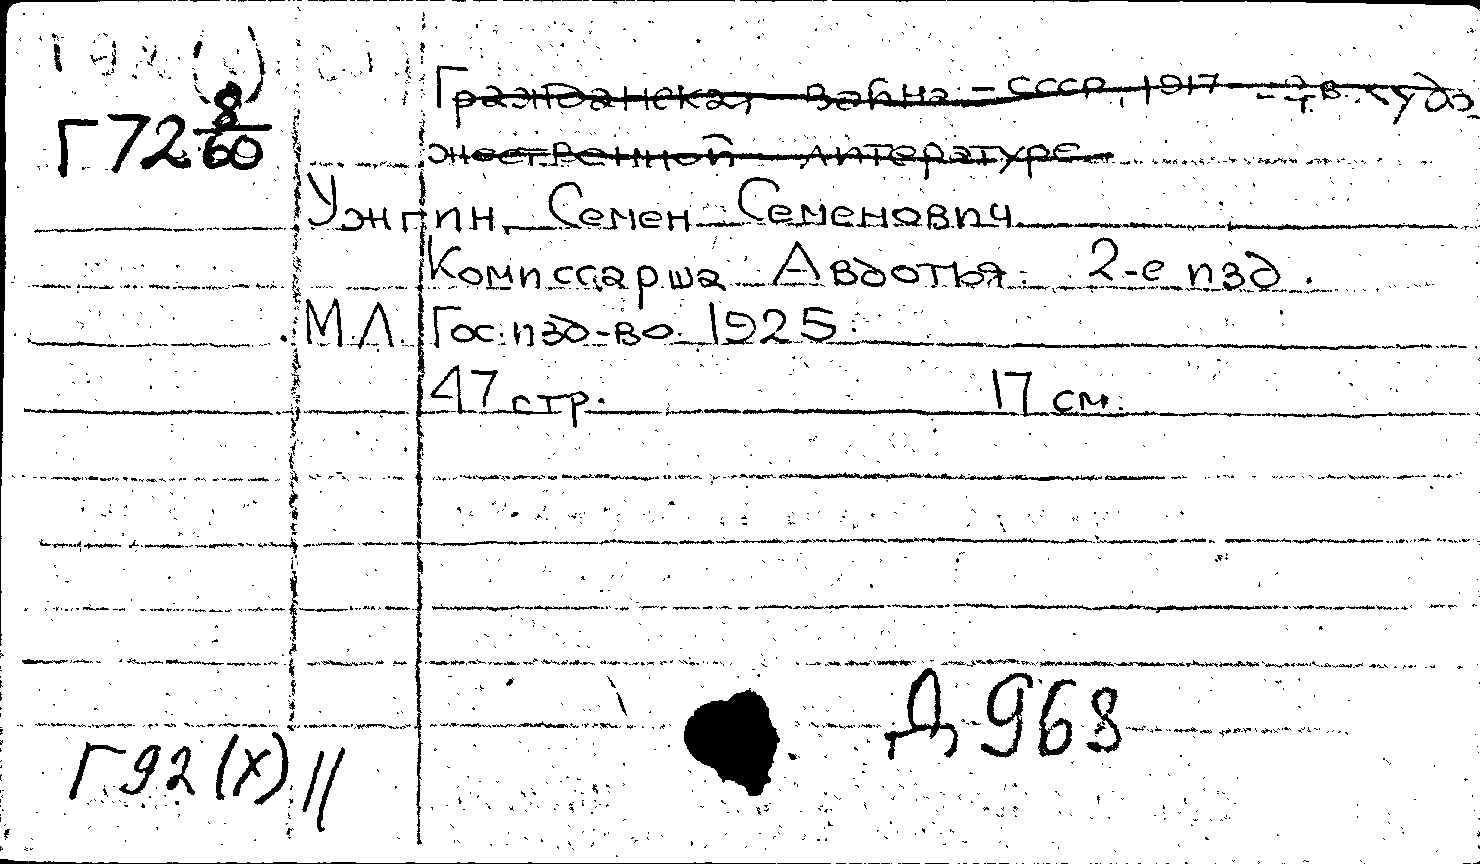 Г 72 8/60
Гражданская война – СССР, 1917 – в худо-
жественной литературе
Ужгин, Семен Семенович
Комиссарша Авдотья. 2-е изд.
М.Л. Гос. изд-во. 1925.
47 стр. 17 см.
Д 968
Г 92 (X) //